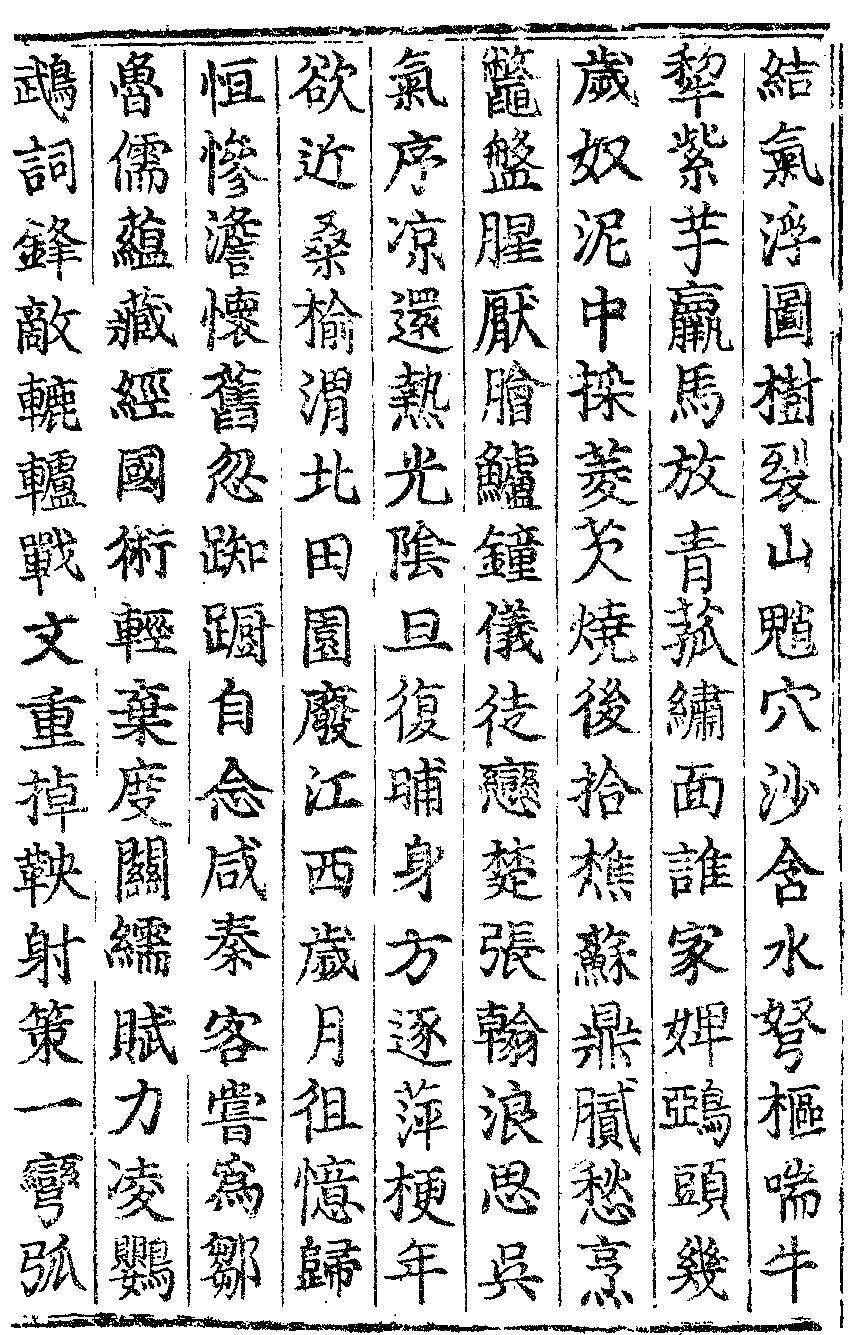 結氣浮圖樹裂山魈穴沙含水弩樞喘牛
犂紫芋羸馬放青菰繡面誰家婢鵶頭幾
歲奴泥中採菱芡燒後拾樵蘇鼎膩愁烹
鼈盤腥厭膾鱸鐘儀徒戀楚張翰浪思吳
氣序凉還熱光陰旦復晡身方逐萍梗年
欲近桑榆渭北田園廢江西歲月徂憶歸
恒慘澹懷舊忽踟蹰自念咸秦客嘗爲鄒
魯儒蘊藏經國術輕棄度關繻賦力凌鸚
鵡詞鋒敵轆轤戰文重掉鞅射策一彎弧